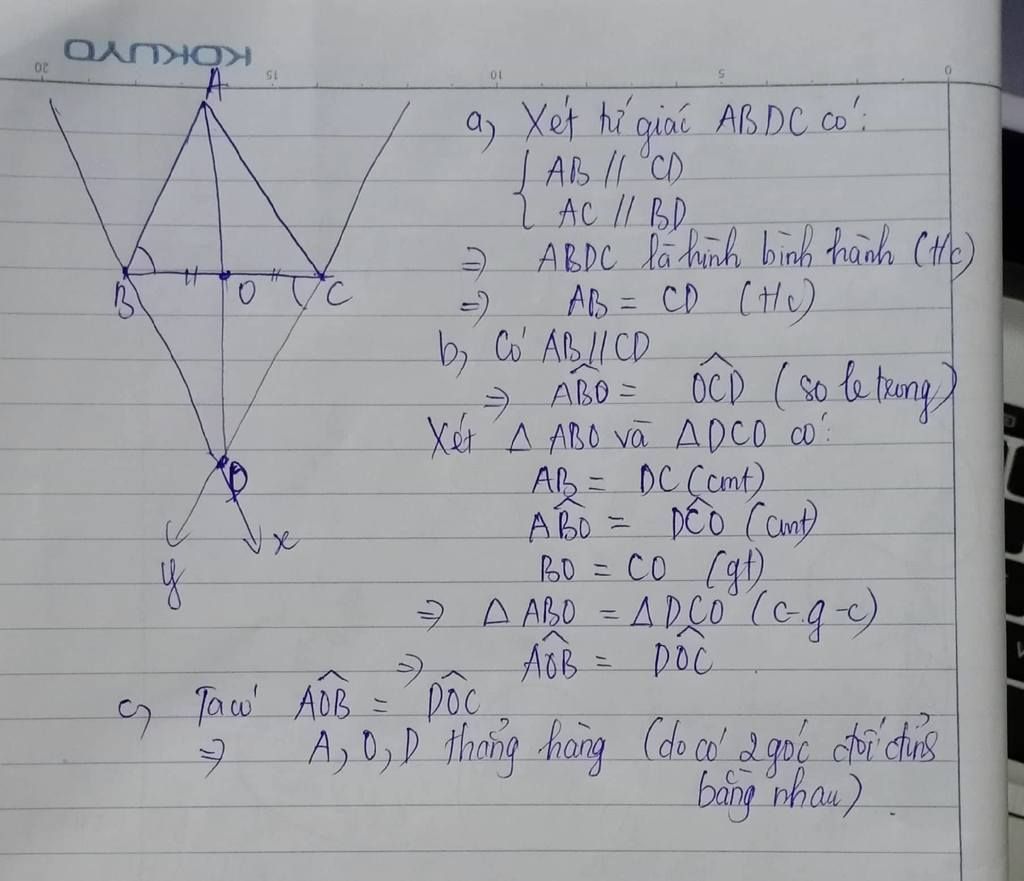 KOKUYO
20 15 10 5 0
A
B O C
D
y x
a, Xét tứ giác ABDC có:
{ AB // CD
{ AC // BD
=> ABDC là hình bình hành (t/c)
=> AB = CD (t/c)
b, Có AB//CD
=> ABO = OCD (so le trong)
Xét Δ ABO và ΔDCO có:
AB = DC (cmt)
ABO = DCO (cmt)
BO = CO (gt)
=> Δ ABO = Δ DCO (c-g-c)
=> AOB = DOC
c, Ta có AOB = DOC
=> A, O, D thẳng hàng (do có 2 góc đối đỉnh
bằng nhau).